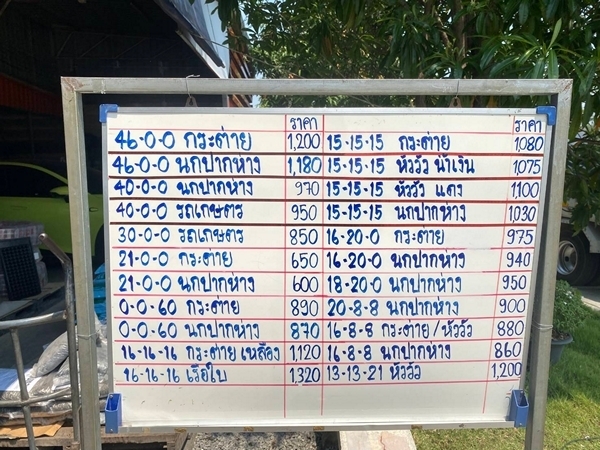 ราคา ราคา
46-0-0 กระต่าย 1,200 15-15-15 กระต่าย 1,080
46-0-0 นกปากห่าง 1,180 15-15-15 หัววัว น้ำเงิน 1,075
40-0-0 นกปากห่าง 970 15-15-15 หัววัว แดง 1,100
40-0-0 รถเกษตร 950 15-15-15 นกปากห่าง 1,030
30-0-0 รถเกษตร 850 16-20-0 กระต่าย 975
21-0-0 กระต่าย 650 16-20-0 นกปากห่าง 940
21-0-0 นกปากห่าง 600 18-20-0 นกปากห่าง 950
0-0-60 กระต่าย 890 20-8-8 นกปากห่าง 900
0-0-60 นกปากห่าง 870 16-8-8 กระต่าย / หัววัว 880
16-16-16 กระต่าย เหลือง 1,120 16-8-8 นกปากห่าง 860
16-16-16 เรือใบ 1,320 13-13-21 หัววัว 1,200